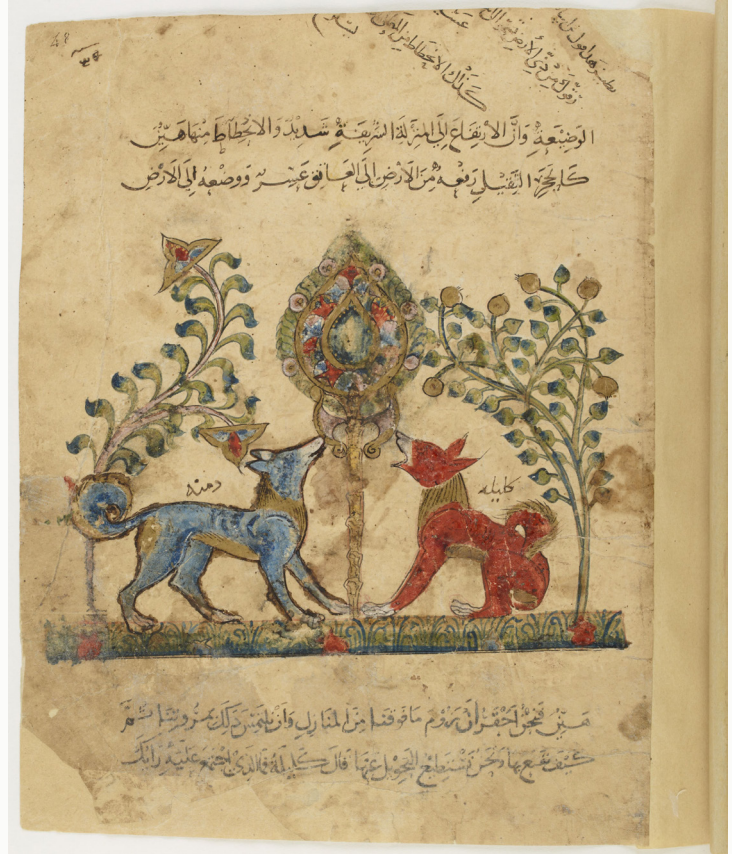 ٣٩
كذلك الانحطاط من
الوضيعة وان الارتفاع الى المنزلة الشريفة شديد والانحطاط منها هين
كالحجر الثقيل رفعه من الارض الى العاتق عسر ووضعه الى الارض
دمنه
كليله
هين فنحن احق ان نروم ما فوقنا من المنازل وان نلتمس ذلك بمروءتنا ثم
كيف نقنع بها ونحن نستطيع التحويل عنها قال كليلة فما الذي اجتمع عليه رايك